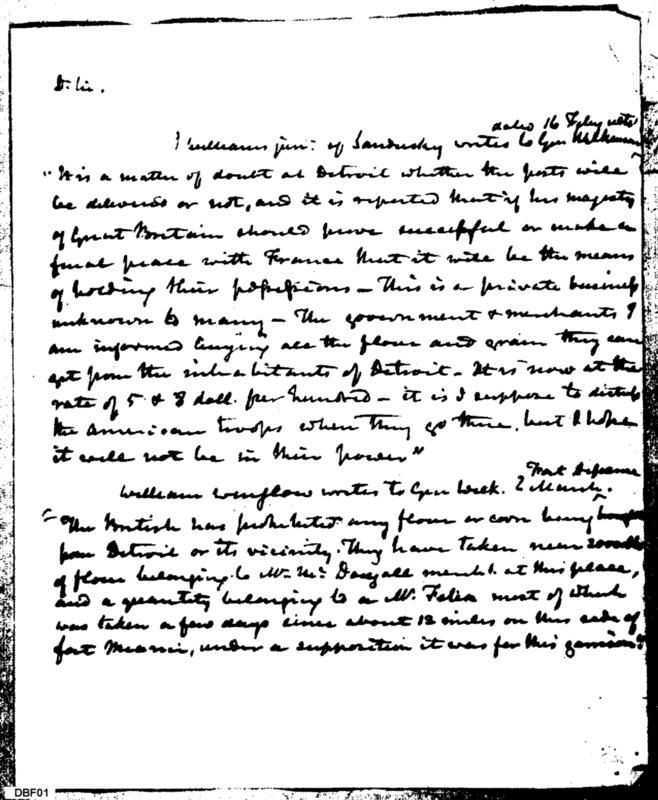 D. Sir.
dated 16 Feby ulto
Williams jun: of Sandusky writes to Genl Wilkinson
"It is a matter of doubt at Detroit whether the posts will
be delivered or not, and it is reported that if his majesty
of Great Britain should prove successful or make a
final peace with France that it will be the means
of holding their possessions – This is a private business
unknown to many – The government & merchants I
am informed buying all the flour and grain they can
get from the inhabitants of Detroit – It is now at the
rate of 5 & 8 doll. per hundred – it is I suppose to distress
the American troops when they go there, but I hope
it will not be in their power"
Fort Defiance
William Winslow writes to Genl Wilk. 2 March.
"The British has prohibited any flour or corn being
from Detroit or its vicinity. They have taken near
of flour belonging to Mr. Mc Dougall mercht. at this place,
and a quantity belonging to a Mr. Felix most of which
was taken a few days since about 12 miles on this side of
fort Miami, under a supposition it was for this garrison."
DBF01